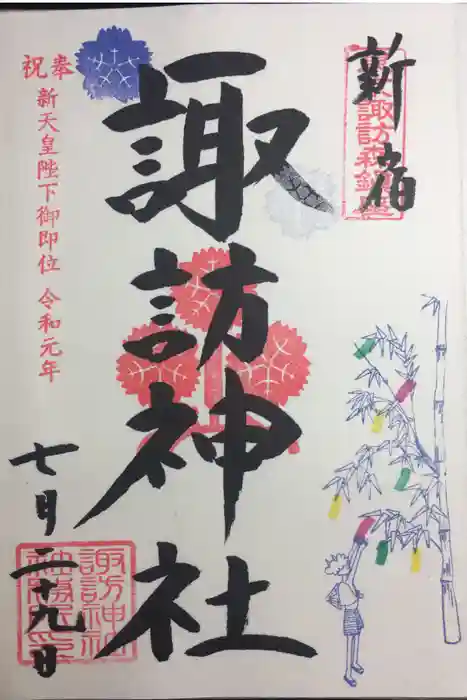 新宿
諏訪神社
奉祝
新天皇陛下御即位 令和元年
七月二十九日